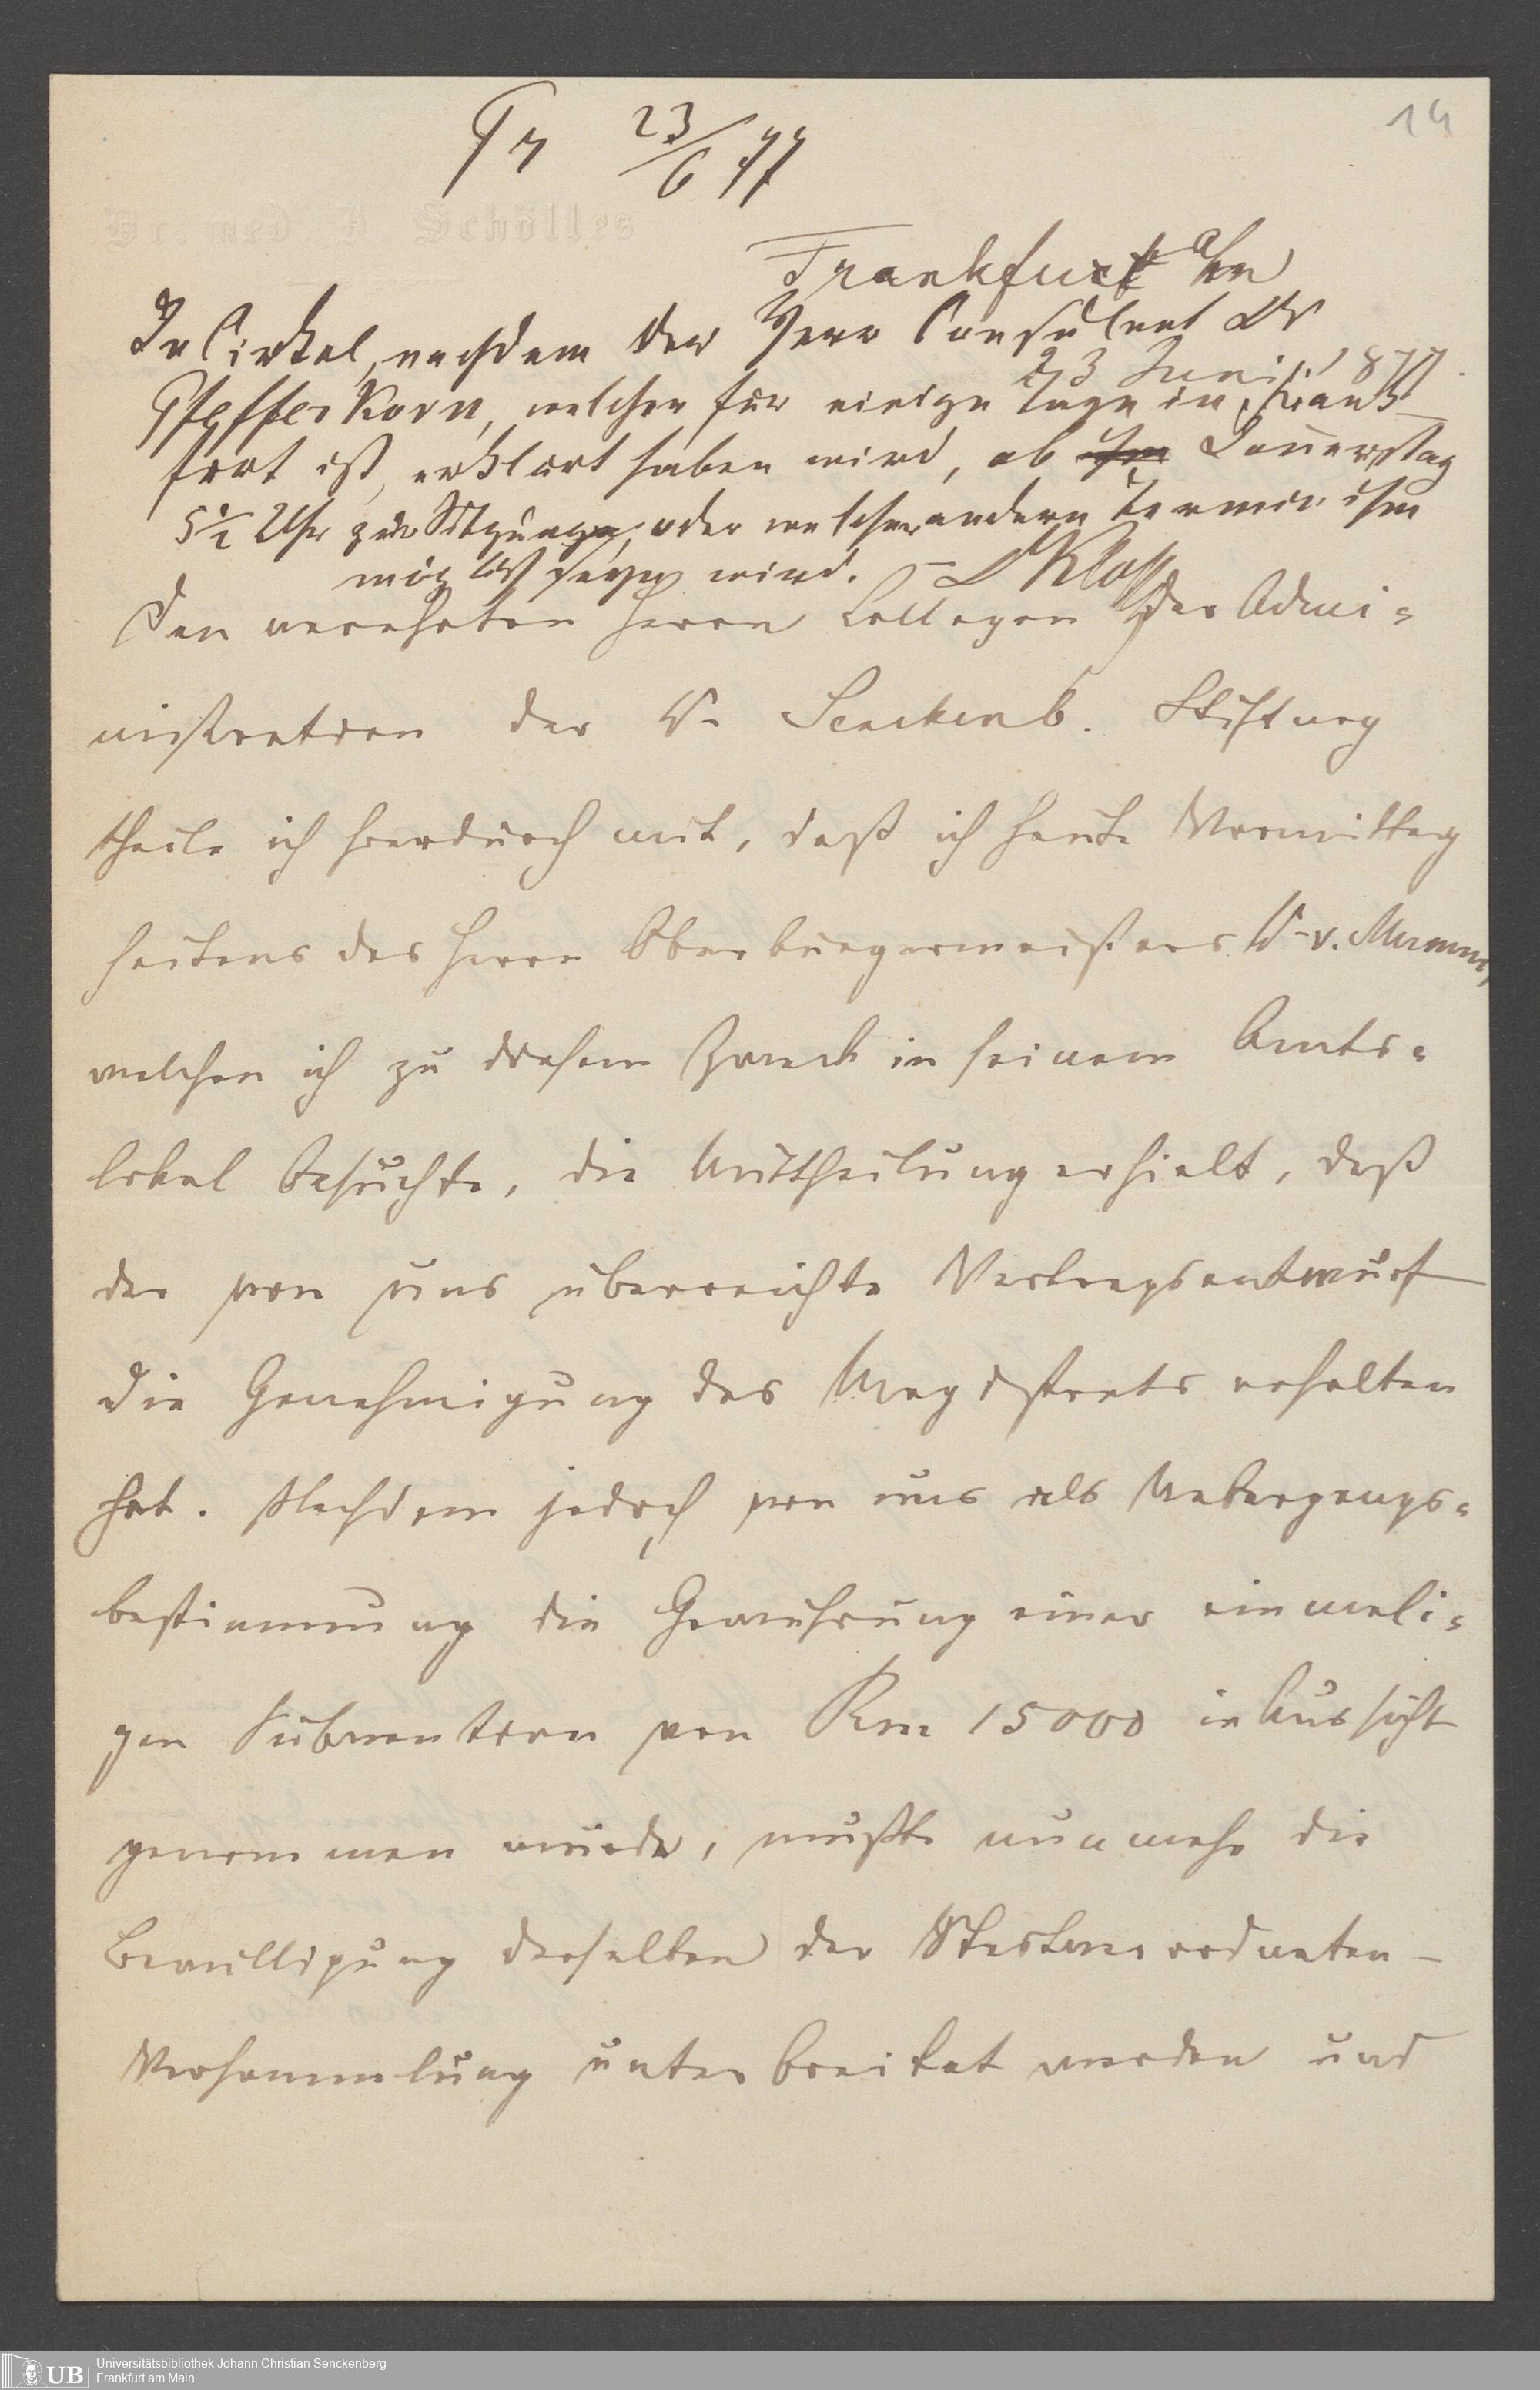 14
Pr 23/6 77
Dr. med. A. Schölles
Frankfurt a/m
23 Juni 1877.
In Cirkel, nachdem der Herr Consulent Dr
Pfefferkorn, welcher für einige Tage in Frank-
furt ist, erklärt haben wird, ob ihm Donnerstag
5 1/2 Uhr zur Sitzung, oder welcher andere Termin ihm
möglich seyn wird. – Dr Kloß
Den verehrten Herrn Collegen der Admi=
nistration der Dr. Senckenb. Stiftung
theile ich hierdurch mit, daß ich heute Vormittag
seitens des Herrn Oberbürgermeisters Dr v. Mumm,
welchen ich zu diesem Zweck in seinem Amts=
lokal besuchte, die Mittheilung erhielt, daß
der von uns überreichte Vertragsentwurf
die Genehmigung des Magistrats erhalten
hat. Nachdem jedoch von uns als Uebergangs=
bestimmung die Gewährung einer einmali=
gen Subvention von Rm 15000 in Aussicht
genommen wurde, mußte nunmehr die
Bewilligung derselben der Stadtverordneten-
Versammlung unterbreitet werden und
Universitätsbibliothek Johann Christian Senckenberg
Frankfurt am Main
UB